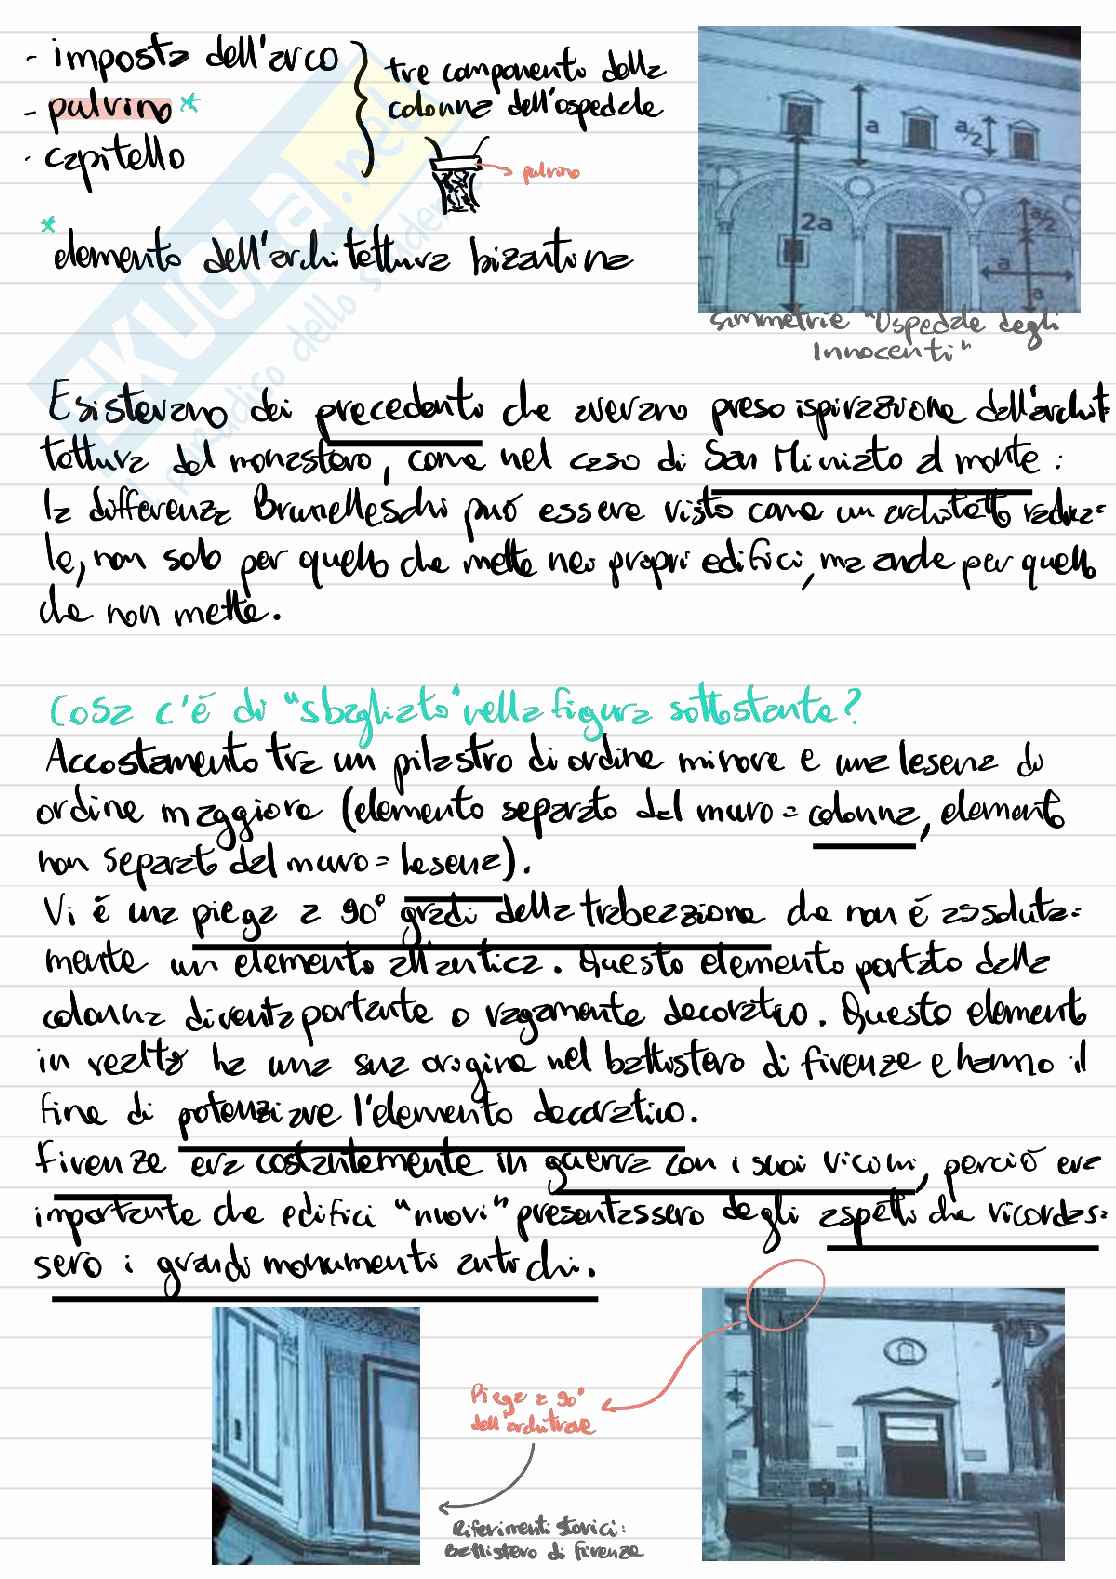 - imposta dell'arco
- pulvino *
- capitello
tre componento della
colonna dell'ospedale
pulvino
* elemento dell'architettura bizantina
a
a/2
2a
a/2
a
a
Simmetrie "Ospedale degli
Innocenti"
SKUOLA.net
Esistevano dei precedento che avevano preso ispirazione dall'archit-
tettura del monastero, come nel caso di San Miniato al monte:
la differenza Brunelleschi può essere visto come un architetto radica-
le, non solo per quello che mette nei propri edifici, ma anche per quello
che non mette.
Cosa c'è di "sbagliato" nella figura sottostante?
Accostamento tra un pilastro di ordine minore e una lesena di
ordine maggiore (elemento separato dal muro = colonna, elemento
non separato dal muro = lesena).
Vi è una piega a 90° gradi della trabeazione che non è assoluta-
mente un elemento all'antica. Questo elemento portato dalla
colonna diventa portante o vagamente decorativo. Questo elemento
in realtà ha una sua origine nel battistero di firenze e hanno il
fine di potenziare l'elemento decorativo.
Firenze era costantemente in guerra con i suoi vicini, perciò era
importante che edifici "nuovi" presentassero degli aspetti che ricordas-
sero i grandi monumento antichi.
Piega a 90°
dell'architrave
Riferimenti storici:
Battistero di Firenze